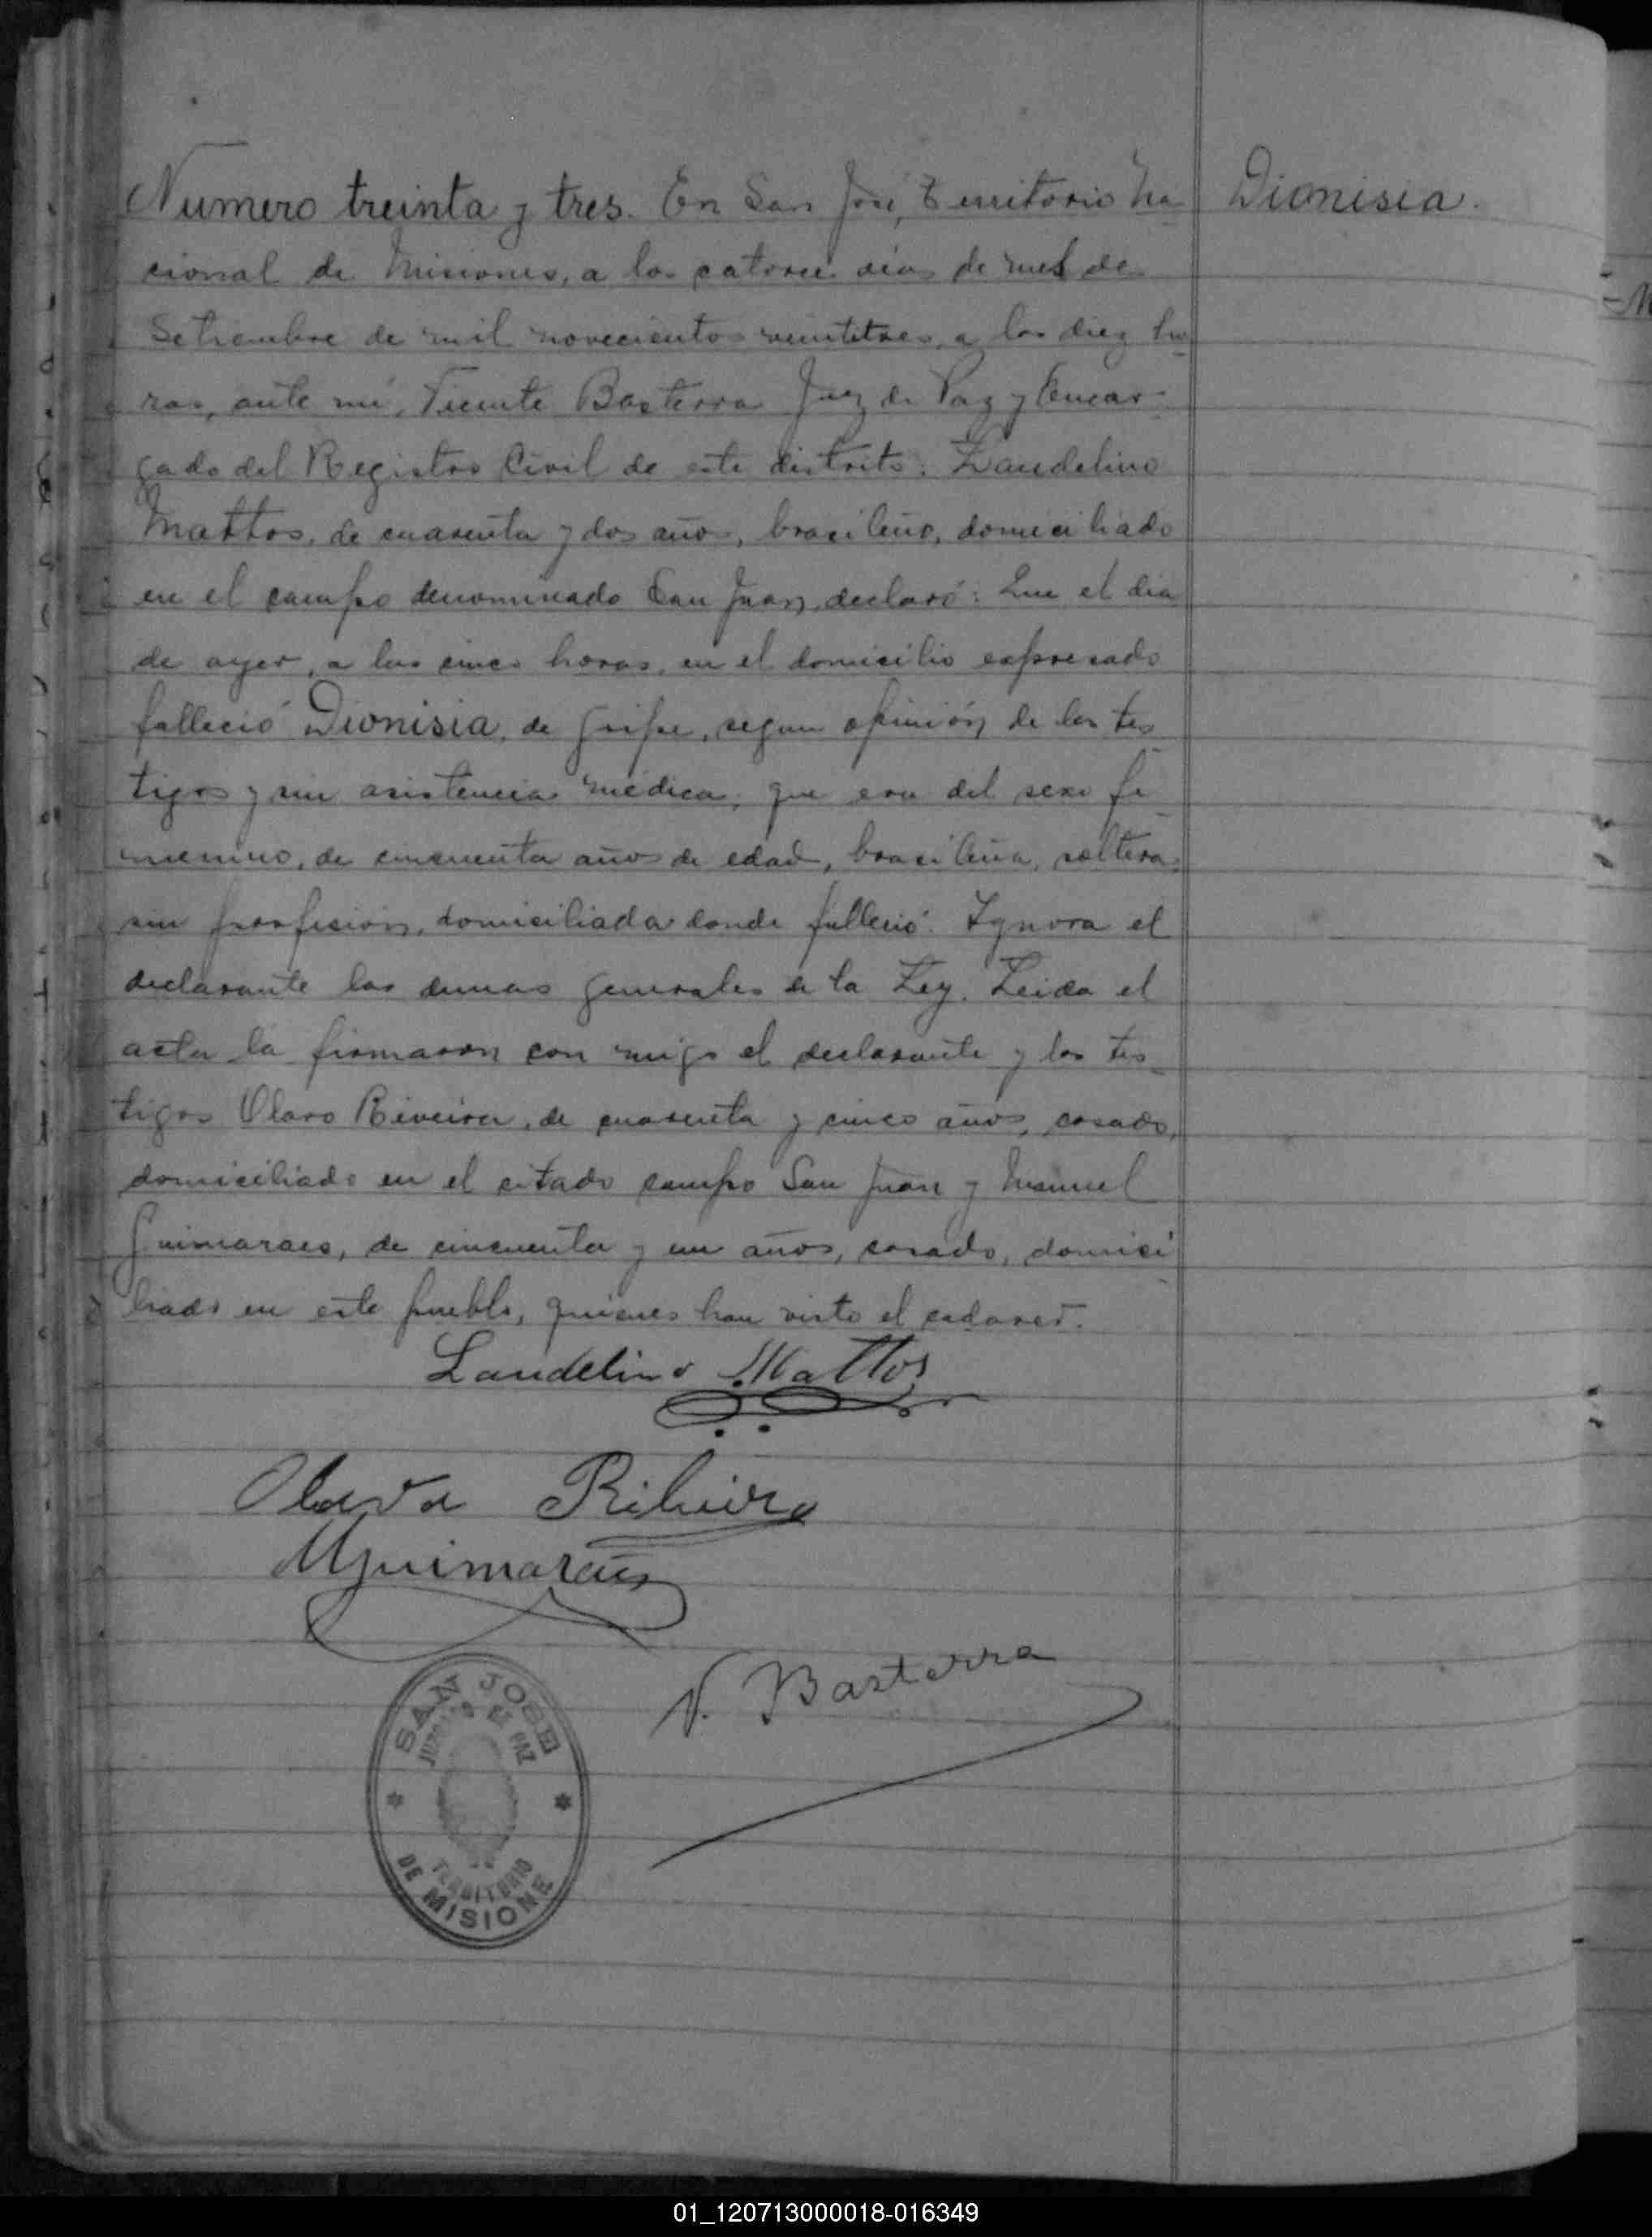 Numero treinta y tres. En San José, Territorio Na
Dionisia.
cional de Misiones, a los catorce dias de mes de
Setiembre de mil novecientos veintitres, a las diez ho
ras, ante mi, Vicente Basterra Juez de Paz y Encar-
gado del Registro Civil de este distrito: Laudelino
Mattos, de cuarenta y dos años, brasileño, domiciliado
en el campo denominado San Juan, declaró: Que el dia
de ayer, a las cinco horas, en el domicilio expresado
falleció Dionisia, de gripe, segun opinión de los tes
tigos y sin asistencia médica, que era del sexo fe
menino, de cincuenta años de edad, brasileña, soltera,
sin profesion, domiciliada donde falleció. Ignora el
declarante las demas generales de la Ley. Leida el
acta la firmaron con migo el declarante y los tes
tigos Olavo Riveira, de cuarenta y cinco años, casado,
domiciliado en el citado campo San Juan y Manuel
Guimaraes, de cincuenta y un años, casado, domici
liado en este pueblo, quienes han visto el cadaver.
Laudelino Mattos
Olavo Ribeiro
MGuimarães
V. Basterra
SAN JOSE
JUZGADO DE PAZ
TERRITORIO
DE MISIONE
01_120713000018-016349